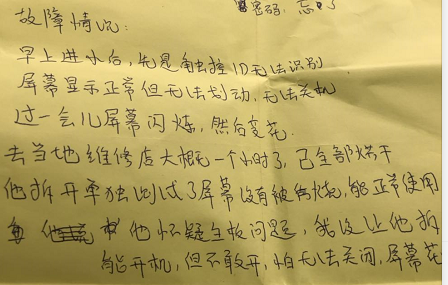 密码,忘了
故障情况:
早上进水后,先是触控ID无法识别
屏幕显示正常但无法划动,无法关机
过一会儿屏幕闪烁,然后变花.
去当地维修店大概一个小时了,已全部烘干
他拆开单独测试了屏幕没有被烧,能正常使用
他怀疑主板问题,我没让他拆
能开机,但不敢开,怕无法关闭,屏幕花